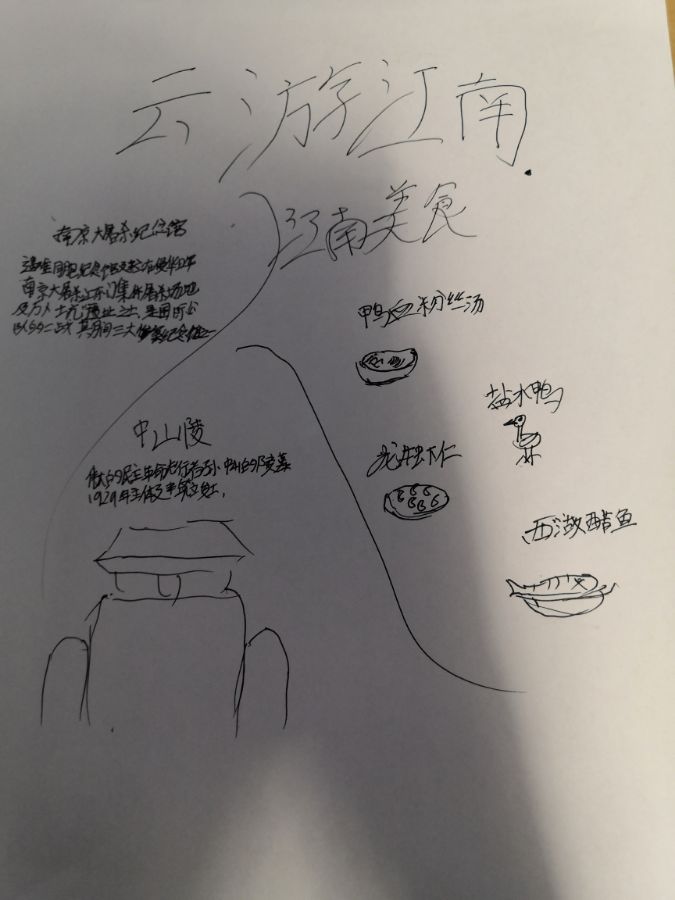 云游江南
江南美食
南京大屠杀纪念馆
南京大屠杀江东门集体屠杀场地
及万人坑遗址之上,是国际公
认的二战期间三大惨案纪念馆之一
中山陵
伟大的民主革命先行者孙中山的陵墓
1929年主体建筑
鸭血粉丝汤
盐水鸭
龙井虾仁
西湖醋鱼